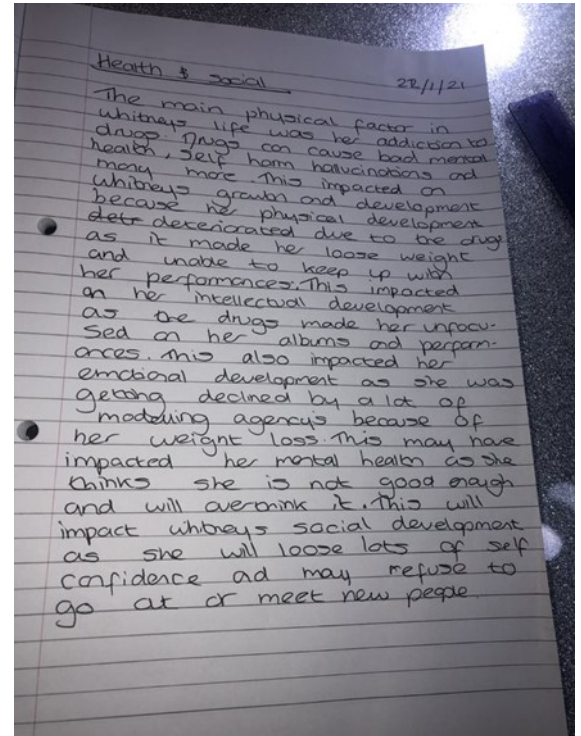 Health & social
22/1/21
The main physical factor in
whitneys life was her addiction to
drugs. Drugs can cause bad mental
health, self harm hallucinations and
many more. This impacted on
whitneys growth and development
because her physical development
detr deteriorated due to the drugs
as it made her loose weight
and unable to keep up with
her performances. This impacted
on her intellectual development
as the drugs made her unfocu-
sed on her albums and perform-
ances. This also impacted her
emotional development as she was
getting declined by a lot of
modeling agencys because of
her weight loss. This may have
impacted her mental health as she
thinks she is not good enough
and will overthink it. This will
impact whitneys social development
as she will loose lots of self
confidence ad may refuse to
go out or meet new people.